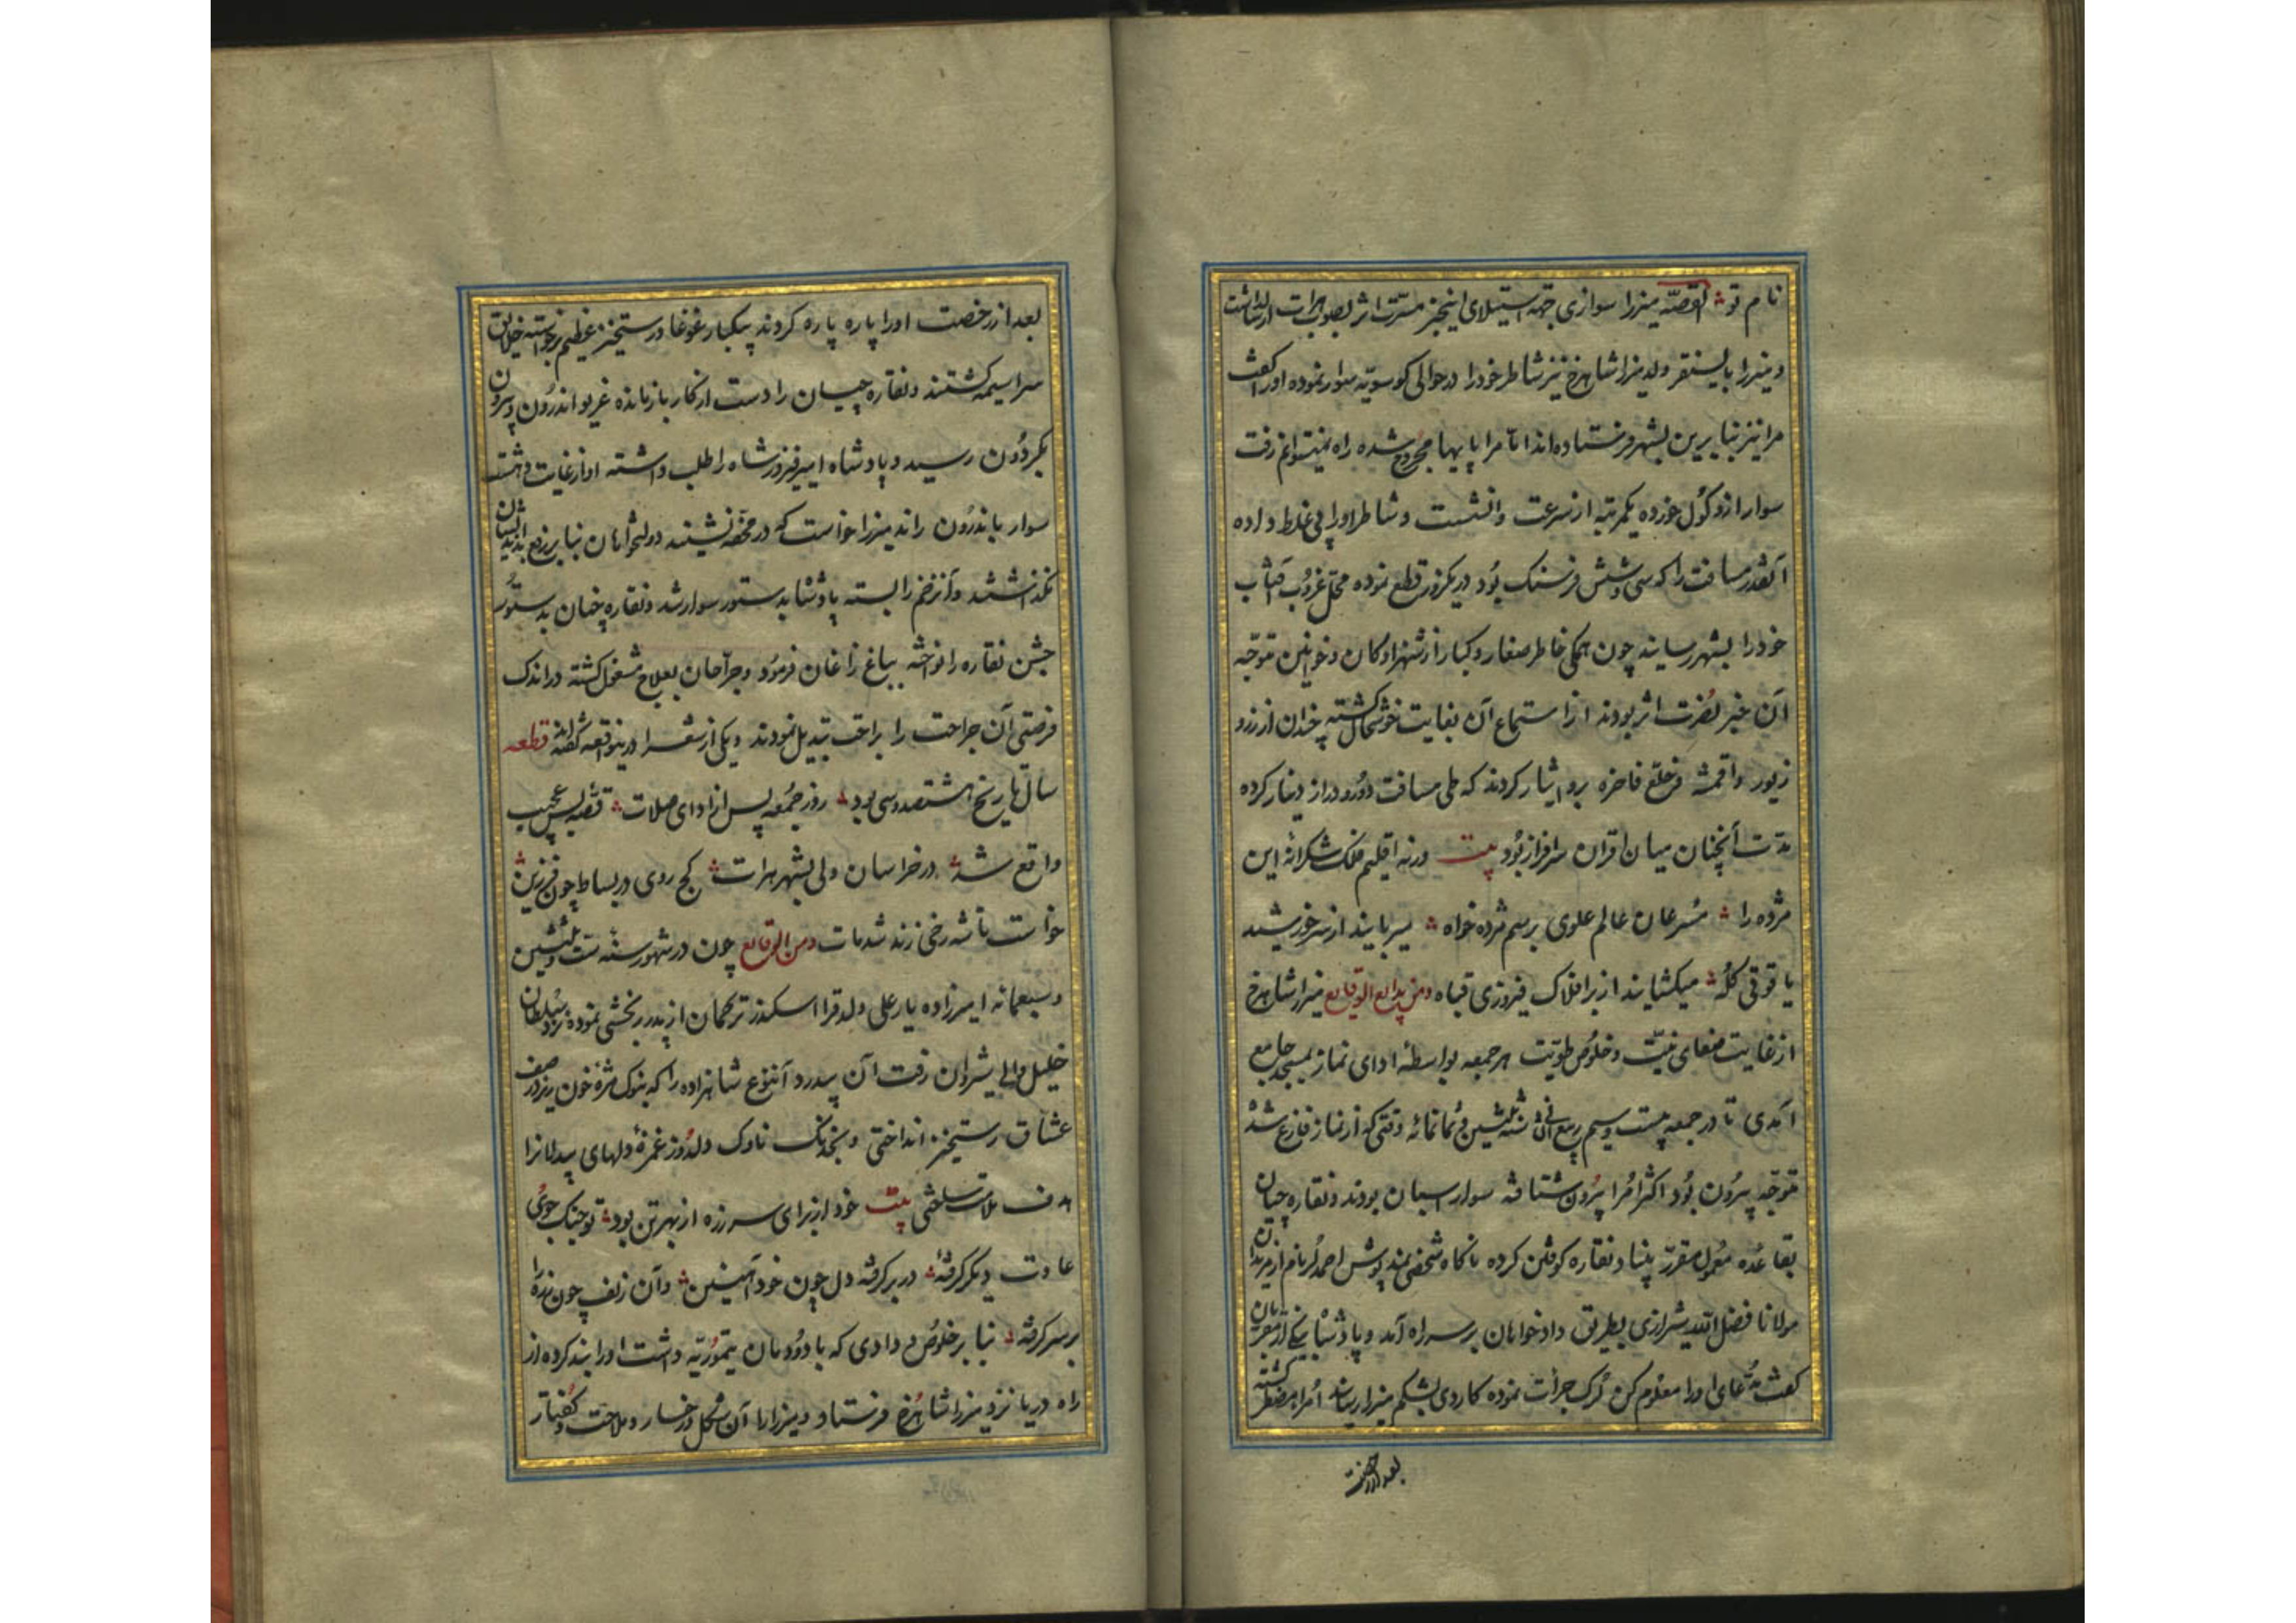 نام تو القصّه میرزا سواری جهة استیلای اینخبر مسرّت اثر بصوب هرات ارسال داشت
و میرزا بایسنقر ولد میرزا شاهرخ نیز شاطر خود را در حوالی کوسویه سوار نموده او را گفت
مرا نیز بنابرین بشهر فرستاده‌اند امّا مرا پایها مجروح شده راه نمیتوانم رفت
سوار ازو گول خورده یکمرتبه از سرعت وانشست و شاطر او را پی غلط داده
آنقدر مسافت را که سی و شش فرسنک بُود در یکروز قطع نموده محلّ غروب آفتاب
خود را بشهر رسانید چون همکی خاطر صغار و کبار از شهزادکان و خوانین متوجّه
آن خبر نُصرت اثر بودند از استماع آن بغایت خوشحال کشته چندان از زر و
زیور و اقمشه و خلع فاخره برو ایثار کردند که طی مسافت دور و دراز دینار کرده
مدّت آنچنان میان اقران سرافراز بُود بیت ورنه اقلیم فلک شکرانهٔ این
مژده را مُسرعان عالم علوی برسم مژده خواه میربایند از سر خورشید
یاقوتی کُله میکشایند از بر افلاک فیروزی قباه ومن بدایع الوقایع میرزا شاهرخ
از غایت صفای نیّت و خلوُص طویّت هر جمعه بواسطهٔ ادای نماز بمسجد جامع
آمدی تا در جمعه بیست و سیم ربیع الثانی سنه ثلثین و ثمانمائه وقتی که از نماز فارغ شده
متوجّه بیرُون بُود اکثر امُرا بیرُون شتافته سوار اسبان بودند و نقاره‌چیان
بقاعده معمول مقرّر بنیاد نقاره کوفتن کرده ناکاه شخصی نمد پوش احمد لُر نام از مریدان
مولانا فضل الله شیرازی بطریق دادخواهان بر سر راه آمد و پادشاه بیکی از مقربان
کفت مدّعای او را معلوم کن لُرک جرأت نموده کاردی بشکم میرزا رسانید امُرا مضطر کشته
بعد از رخصت
بعد از رخصت او را پاره پاره کردند بیکبار غوغا و رستخیز عظیم برخواسته خلایق
سراسیمه کشتند و نقاره‌چیان را دست از کار بازمانده غریو اندرُون و بیرون
بکردُون رسید و پادشاه امیر فیروزشاه را طلب داشته او از غایت دهشت
سوار باندرُون راند میرزا خواست که در محفّه نشیند دولتخواهان بنابر رفع
نکذاشتند و آن زخم را بسته پادشاه بدستور سوار شد و نقاره‌چیان بدستور
جشن نقاره را نواخته بباغ زاغان فرمُود و جراحان بعلاج مشغول کشته در اندک
فرصتی آن جراحت را براحت تبدیل نمودند و یکی از شعرا درینواقعه گفته قطعه
سال تاریخ هشتصد و سی بود روز جمُعه پس از ادای صلات قصّهٔ بس عجیب
واقع شد در خراسان ولی بشهر هرات کج روی در بساط چون فرزین
خواست تا شه رخی زند شد مات ومن الوقایع چون در شهور سنه ست و ثلثین
و سبعمائه امیرزاده یار علی ولد قرا اسکندر ترکمان از پدر رنجشی نموده نزد سُلطان
خلیل والی شیروان رفت آن بیدرد آننوع شاهزاده را که بنوک مژهٔ خون ریز در صف
عشاق رستخیز انداختی و بخدنک ناوک دلدُوز غمزهٔ دلهای بیدلانرا
هدف ملامت ساختی بیت خود از برای سر زره از بهر تن بود تو جنک جوی
عادت دیکر کرفته در بر کرفته دل چون خود آهنین وآن زلف چون زره را
بر سر کرفته بنابر خلوُص و دادی که با دوُدمان تیموریّه داشت او را بند کرده از
راه دریا نزد میرزا شاهرُخ فرستاد و میرزا را آن شکل و رخسار و ملاحت و گفتار